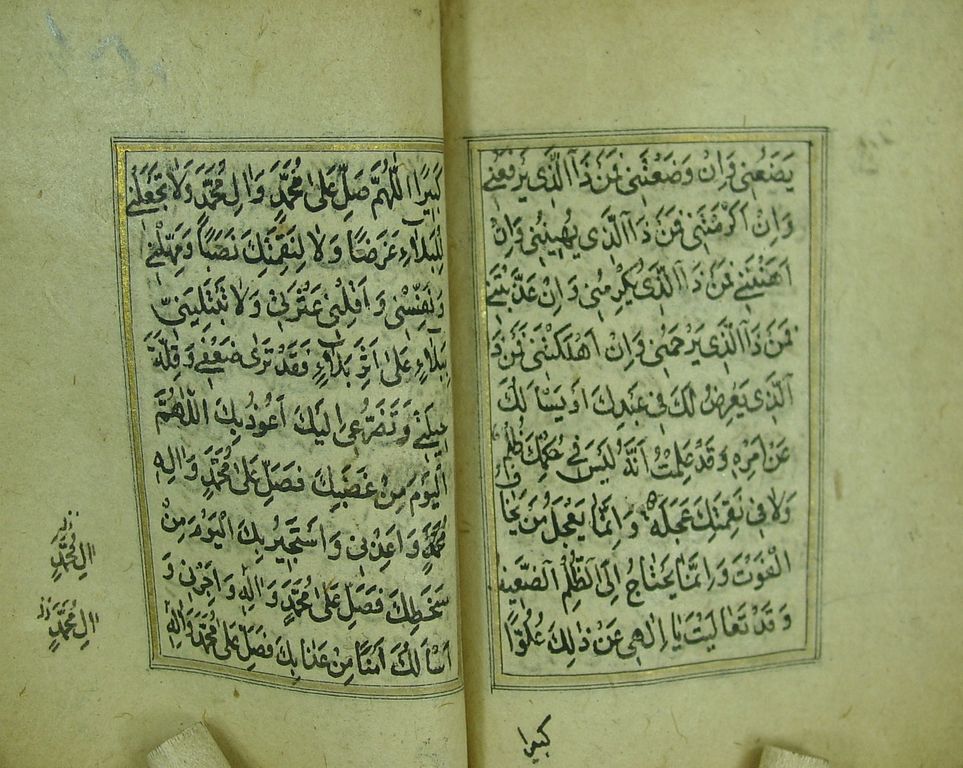 يَضَعُنِي وَاِنْ وَضَعْتَنِي فَمَنْ ذَا الَّذِي يَرْفَعُنِي
وَاِنْ اَكْرَمْتَنِي فَمَنْ ذَا الَّذِي يُهِينُنِي وَاِنْ
اَهَنْتَنِي فَمَنْ ذَا الَّذِي يُكْرِمُنِي وَاِنْ عَذَّبْتَنِي
فَمَنْ ذَا الَّذِي يَرْحَمُنِي وَاِنْ اَهْلَكْتَنِي فَمَنْ ذَا
الَّذِي يَعْرِضُ لَكَ فِي عَبْدِكَ اَوْ يَسْاَلُكَ
عَنْ اَمْرِهِ وَقَدْ عَلِمْتُ اَنَّهُ لَيْسَ فِي حُكْمِكَ ظُلْمٌ
وَلَا فِي نَقِمَتِكَ عَجَلَةٌ وَاِنَّمَا يَعْجَلُ مَنْ يَخَافُ
الْفَوْتَ وَاِنَّمَا يَحْتَاجُ اِلَى الظُّلْمِ الضَّعِيفُ
وَقَدْ تَعَالَيْتَ يَا اِلٰهِي عَنْ ذٰلِكَ عُلُوًّا
كبيرا
كَبِيرًا اَللّٰهُمَّ صَلِّ عَلٰى مُحَمَّدٍ وَاٰلِ مُحَمَّدٍ وَلَا تَجْعَلْنِي
لِلْبَلَاءِ غَرَضًا وَلَا لِنَقِمَتِكَ نَصَبًا وَمَهِّلْنِي
وَنَفِّسْنِي وَاَقِلْنِي عَثْرَتِي وَلَا تَبْتَلِيَنِّي
بِبَلَاءٍ عَلٰى اَثَرِ بَلَاءٍ فَقَدْ تَرٰى ضَعْفِي وَقِلَّةَ
حِيلَتِي وَتَضَرُّعِي اِلَيْكَ اَعُوذُ بِكَ اللّٰهُمَّ
الْيَوْمَ مِنْ غَضَبِكَ فَصَلِّ عَلٰى مُحَمَّدٍ وَاٰلِهِ
مُحَمَّدٍ وَاَعِذْنِي وَاَسْتَجِيرُ بِكَ الْيَوْمَ مِنْ
سَخَطِكَ فَصَلِّ عَلٰى مُحَمَّدٍ وَاٰلِهِ وَاَجِرْنِي وَ
اَسْاَلُكَ اَمْنًا مِنْ عَذَابِكَ فَصَلِّ عَلٰى مُحَمَّدٍ وَاٰلِهِ
اٰلِ مُحَمَّدٍ
اٰلِ مُحَمَّدٍ